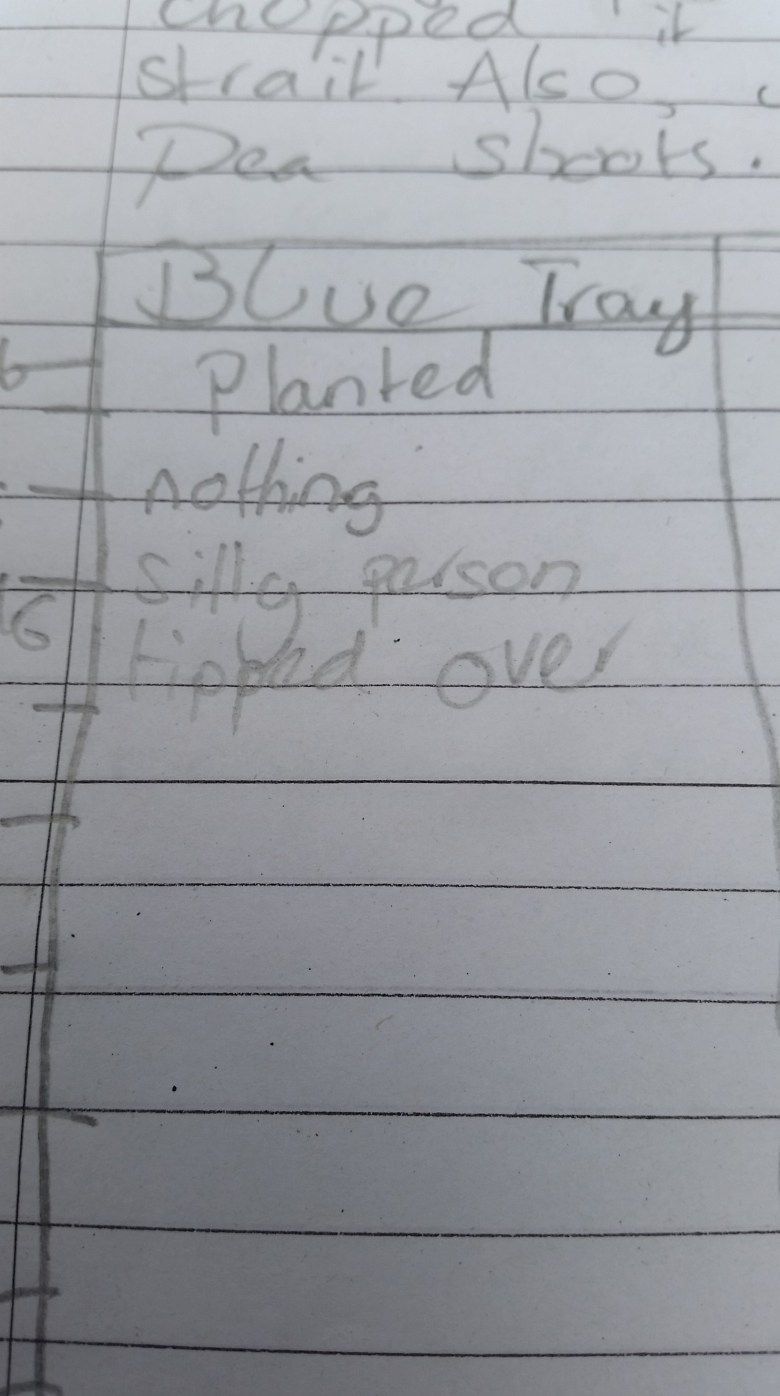 chopped it
strait. Also,
Pea shoots.
Blue Tray
Planted
nothing
silly person
16
tipped over